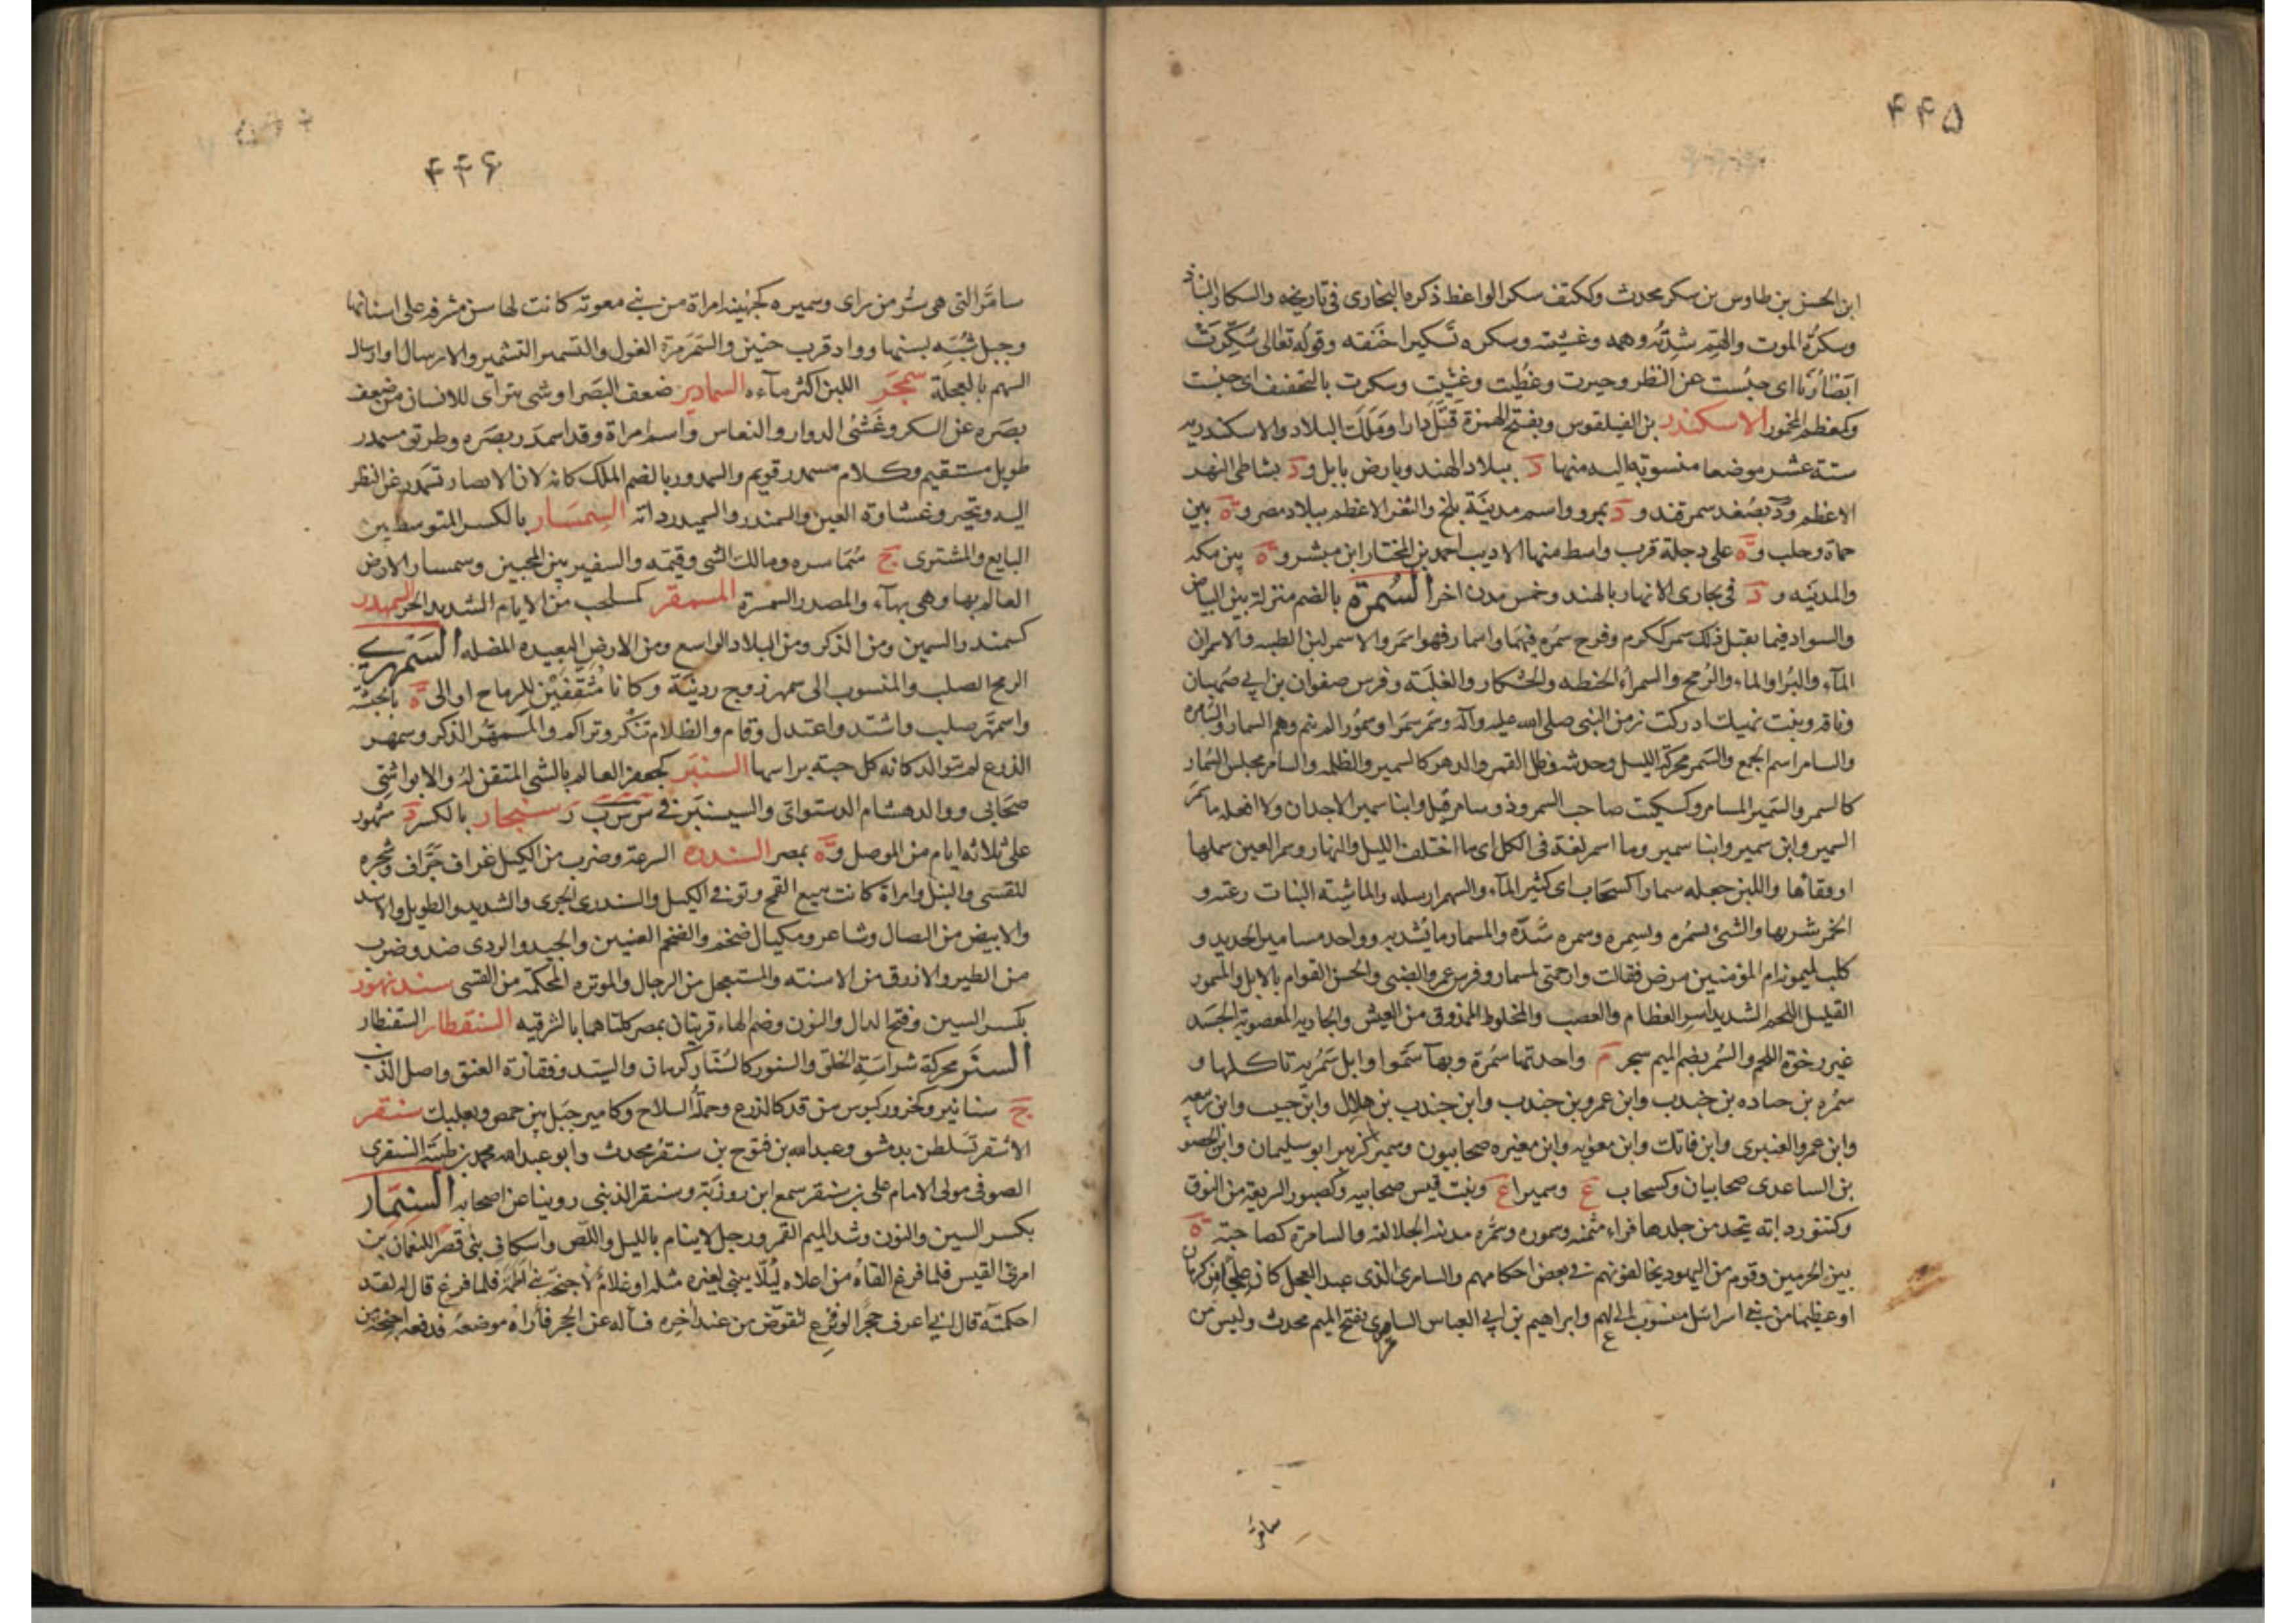 ۴۴۵
ابن الحسن بن طاوس بن سكر محدث وككتف سكر الواعظ ذكره البخارى فى تاريخه والسكار النباذ
وسكرة الموت والهم شدته وهمه وغشيته وسكره تسكيرا خنقه وقوله تعالى سكرت
ابصارنا اى حبست عن النظر وحيرت وغطيت وغشيت وسكرت بالتخفيف اى حبست
وكمعظم المخمور الاسكندر بن الفيلقوس وبفتح الهمزة قتل دارا وملك البلاد والاسكندريه
ستة عشر موضعا منسوبة اليه منها د ببلاد الهند وبارض بابل ود بشاطى النهر
الاعظم ود بصغد سمرقند ود بمرو واسم مدينة بلخ والثغر الاعظم ببلاد مصر وة بين
حماة وحلب وة على دجلة قرب واسط منها الاديب احمد بن المختار ابن مبشر وة بين مكه
والمدينه ود فى مجارى الانهار بالهند وخمس مدن اخر السمرة بالضم منزلة بين البياض
والسواد فيما يقبل ذلك سمر ككرم وفرح سمره فيهما واسمار فهو اسمر والاسمر لبن الظبيه والاسمران
الماء والبر او الماء والرمح والسمراء الحنطه والخشكار والعلبة وفرس صفوان بن ابى صهبان
وناقه وبنت نهيك ادركت زمن النبى صلى الله عليه وآله وسمر سمرا وسمورا لم ينم وهم السمار والسامره
والسامر اسم الجمع والسمر محركة الليل وحديثه وظل القمر والدهر كالسمير والظلمه والسامر مجلس السمار
كالسمر والسمير المسامر وكسكيت صاحب السمر وذو سامر قيل وابنا سمير الاجدان ولا افعله ما سمر
السمير وابن سمير وابنا سمير وما اسمر لغة فى الكل اى ما اختلف الليل والنهار وسمر العين سملها
او فقاها واللبن جعله سمارا كسحاب اى كثير الماء والسهم ارسله والماشيته النبات رعته و
الخمر شربها والشئ يسمره ويسمره وسمره شده والمسمار ما يشد به وواحد مسامير الحديد و
كلب لميمونة ام المؤمنين مرض فقالت وارحمتى لمسمار وفرس عمرو الضبى والحسن القوام بالابل والمسمور
القليل اللحم الشديد اسر العظام والعصب والمخلوط الممذوق من العيش والجاريه المعصوبة الجسد
غير رخوة اللحم والسمر بضم الميم شجر م واحدتها سمرة وبها سموا وابل سمريه تاكلها و
سمره بن جناده بن جندب وابن عمرو بن جندب وابن جندب بن هلال وابن حبيب وابن ربيعه
وابن عمرو العنبرى وابن فاتك وابن معويه وابن مغيره صحابيون وسمير كزبير ابو سليمان وابن الحصين
بن الساعدى صحابيان وكسحاب ع وسميرا ع وبنت قيس صحابيه وكصبور السريعة من النوق
وكتنور دابه يتخذ من جلدها فراء مثمنه وسموره وسمره مدينه الجلالقه والسامرة كصاحبة ة
بين الحرمين وقوم من اليهود يخالفونهم فى بعض احكامهم والسامرى الذى عبد العجل كان علجا من كرمان
او عظيما من بنى اسرائيل منسوب الى لهم وابراهيم بن ابى العباس السامرى بفتح الميم محدث وليس من
سامرا
۴۴۶
سامرا التى هى سر من راى وسميره كجهينه امراة من بنى معويه كانت لها سن مشرفه على اسنانها
وجبل شبه بسنها وواد قرب حنين والسمرمرة الغول والتسمير التشمير والارسال او ارسال
السهم بالعجلة سمجر اللبن اكثر ماءه السمادير ضعف البصر او شى يتراى للانسان من ضعف
بصره عن السكر وغشى الدوار والنعاس واسم امراة وقد اسمدر بصره وطريق مسمدر
طويل مستقيم وكلام مسمدر قويم والسمدور بالضم الملك كانه لان الابصار تسمدر عن النظر
اليه وتتحير وغشاوة العين والسمندر والسميدر دابه السمسار بالكسر المتوسط بين
البايع والمشترى ج سماسره ومالك الشى وقيمه والسفير بين المحبين وسمسار الارض
العالم بها وهى بهاء والمصدر السمسرة المسمقر كمسلحب من الايام الشديد الحر السمهدر
كسمندر السمين ومن الذكر ومن البلاد الواسع ومن الارض البعيده المضله السمهرى
الرمح الصلب والمنسوب الى سمهر زوج ردينة وكانا مثقفين للرماح او الى ة بالحبشة
واسمهر صلب واشتد واعتدل وقام والظلام تنكر وتراكم والمسمهر الذكر وسمهر
الزرع لم يتوالد كانه كل حبة براسها السنبر كجعفر العالم بالشى المتقن له والابواشى
صحابى ووالد هشام الدستوائى والسيسنبر فى س س ب ر سنجار بالكسر د مشهور
على ثلاثه ايام من الموصل وة بمصر السندره السرعة وضرب من الكيل غراف جراف وشجره
للقسى والنبل وامراة كانت تبيع القمح وتوفى الكيل والسندرى الجرى والشديد والطويل والاسد
والابيض من النصال وشاعر ومكيال ضخم والضخم العينين والجيد والردى ضد وضرب
من الطير والازرق من الاسنه والمستعجل من الرجال والموتره المحكمة من القسى سند نهور
بكسر السين وفتح الدال والنون وضم الهاء قريتان بمصر كلتاهما بالشرقيه السنقطار السقنطار
السنر محركة شراسة الخلق والسنور كالسنار كرمان والسيد وفقارة العنق واصل الذنب
ج سنانير وكحزور لبوس من قد كالدرع وجملة السلاح وكامير جبل بين حمص وبعلبك سنقر
الاشقر تسلطن بدمشق وعبد الله بن فتوح بن سنقر محدث وابو عبد الله محمد بن طيبة السنقرى
الصوفى مولى الامام على بن سنقر سمع ابن روزبة وسنقر الزينبى روينا عن اصحابه السنمار
بكسر السين والنون وشد الميم القمر ورجل لا ينام بالليل واللص واسكاف بنى قصرا للنعمان بن
امرئ القيس فلما فرغ القاه من اعلاه ليلا يبنى لغيره مثله او غلام لاحيحة بنى اطمه فلما فرغ قال له لقد
احكمته قال انى اعرف حجرا لو نزع لتقوض من عند آخره فساله عن الحجر فاراه موضعه فدفعه احيحة من